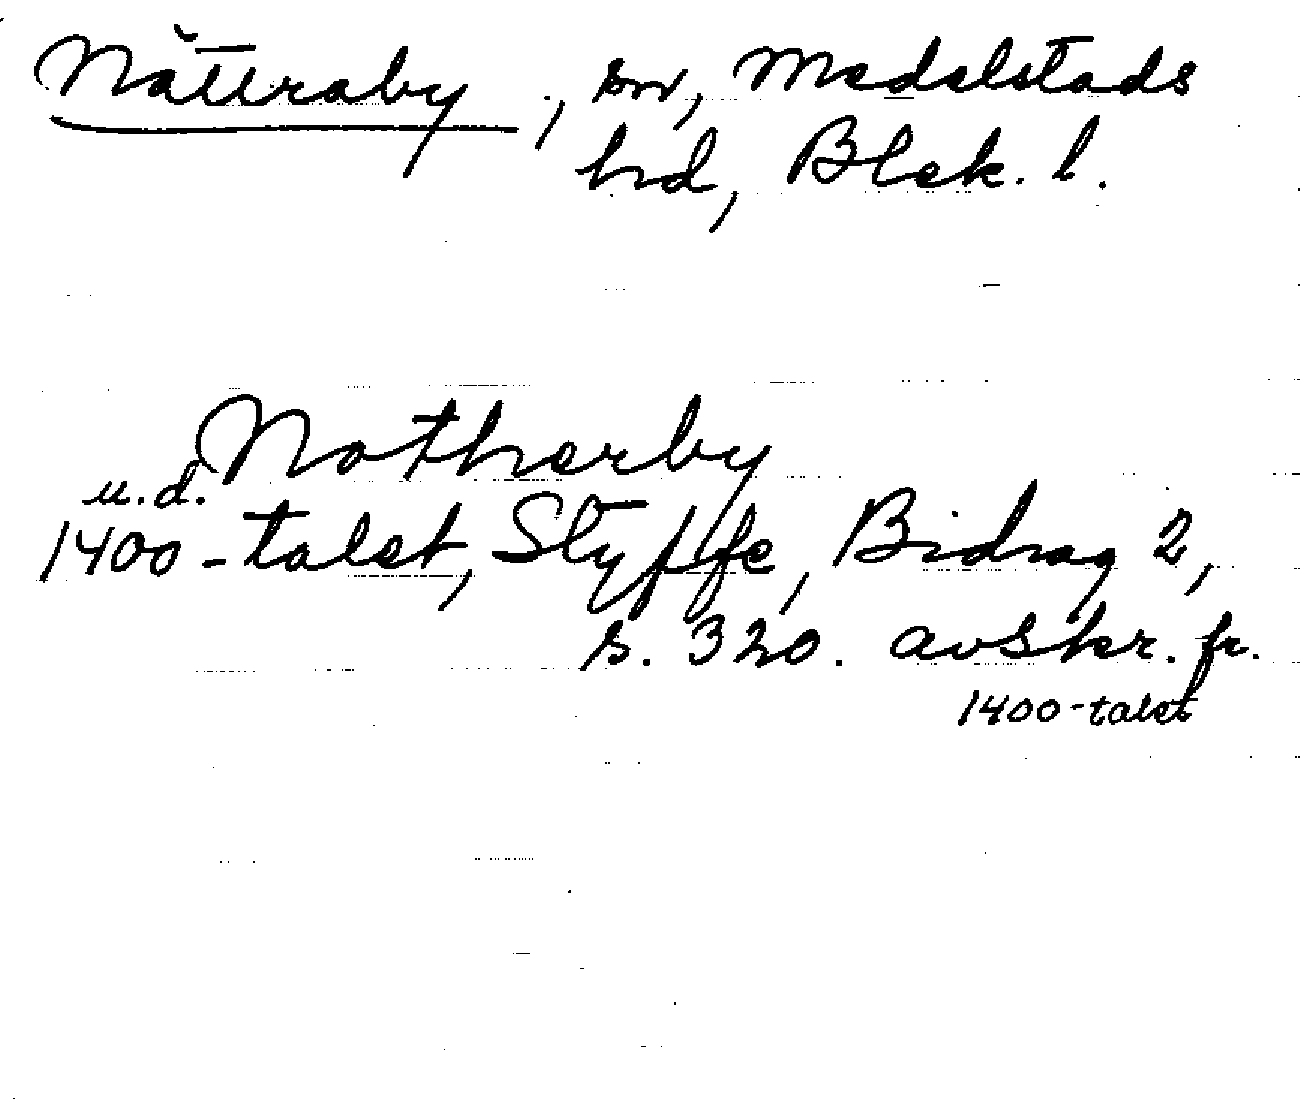 Nättraby, sn, Medelstads
hd, Blek. l.
Notherby
u.d.
1400-talet, Styffe, Bidrag 2,
s. 320. avskr. fr.
1400-talet